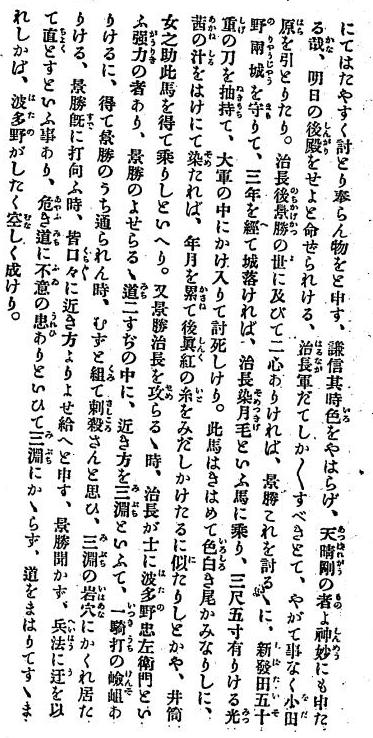 にてはたやすく討とり奉らん物をと申す、謙信其時色をやはらげ、天晴剛の者よ神妙にも申た
る哉、明日の後殿をせよと命ぜられける、治長軍だてしか〳〵すべきとて、やがて事なく小田
原を引とりたり。治長後景勝の世に及びて二心ありければ、景勝これを討るゝに、新發田五十
野兩城を守りて、三年を經て城落ければ、治長染月毛といふ馬に乘り、三尺五寸有りける光
重の刀を抽持て、大軍の中にかけ入りて討死しけり。此馬はきはめて色白き尾かみなりしに、
茜の汁をはけにて染たれば、年月を累て後眞紅の糸をみだしかけたるに似たりしとかや、井筒
女之助此馬を得て乘りしといへり。又景勝治長を攻らるゝ時、治長が士に波多野忠左衞門とい
ふ強力の者あり、景勝のよせらるゝ道二すぢの中に、近き方を三淵といふて、一騎打の嶮岨あ
りけるに、得て景勝のうち通られん時、むずと組て刺殺さんと思ひ、三淵の岩穴にかくれ居た
りける、景勝旣に打向ふ時、皆口々に近き方よりよせ給へと申す、景勝聞かず、兵法に迂を以
て直とすといふ事あり、危き道に不意の患ありといひて三淵にかゝらず、道をまはりてすゝま
れしかば、波多野がしたく空しく成けり。